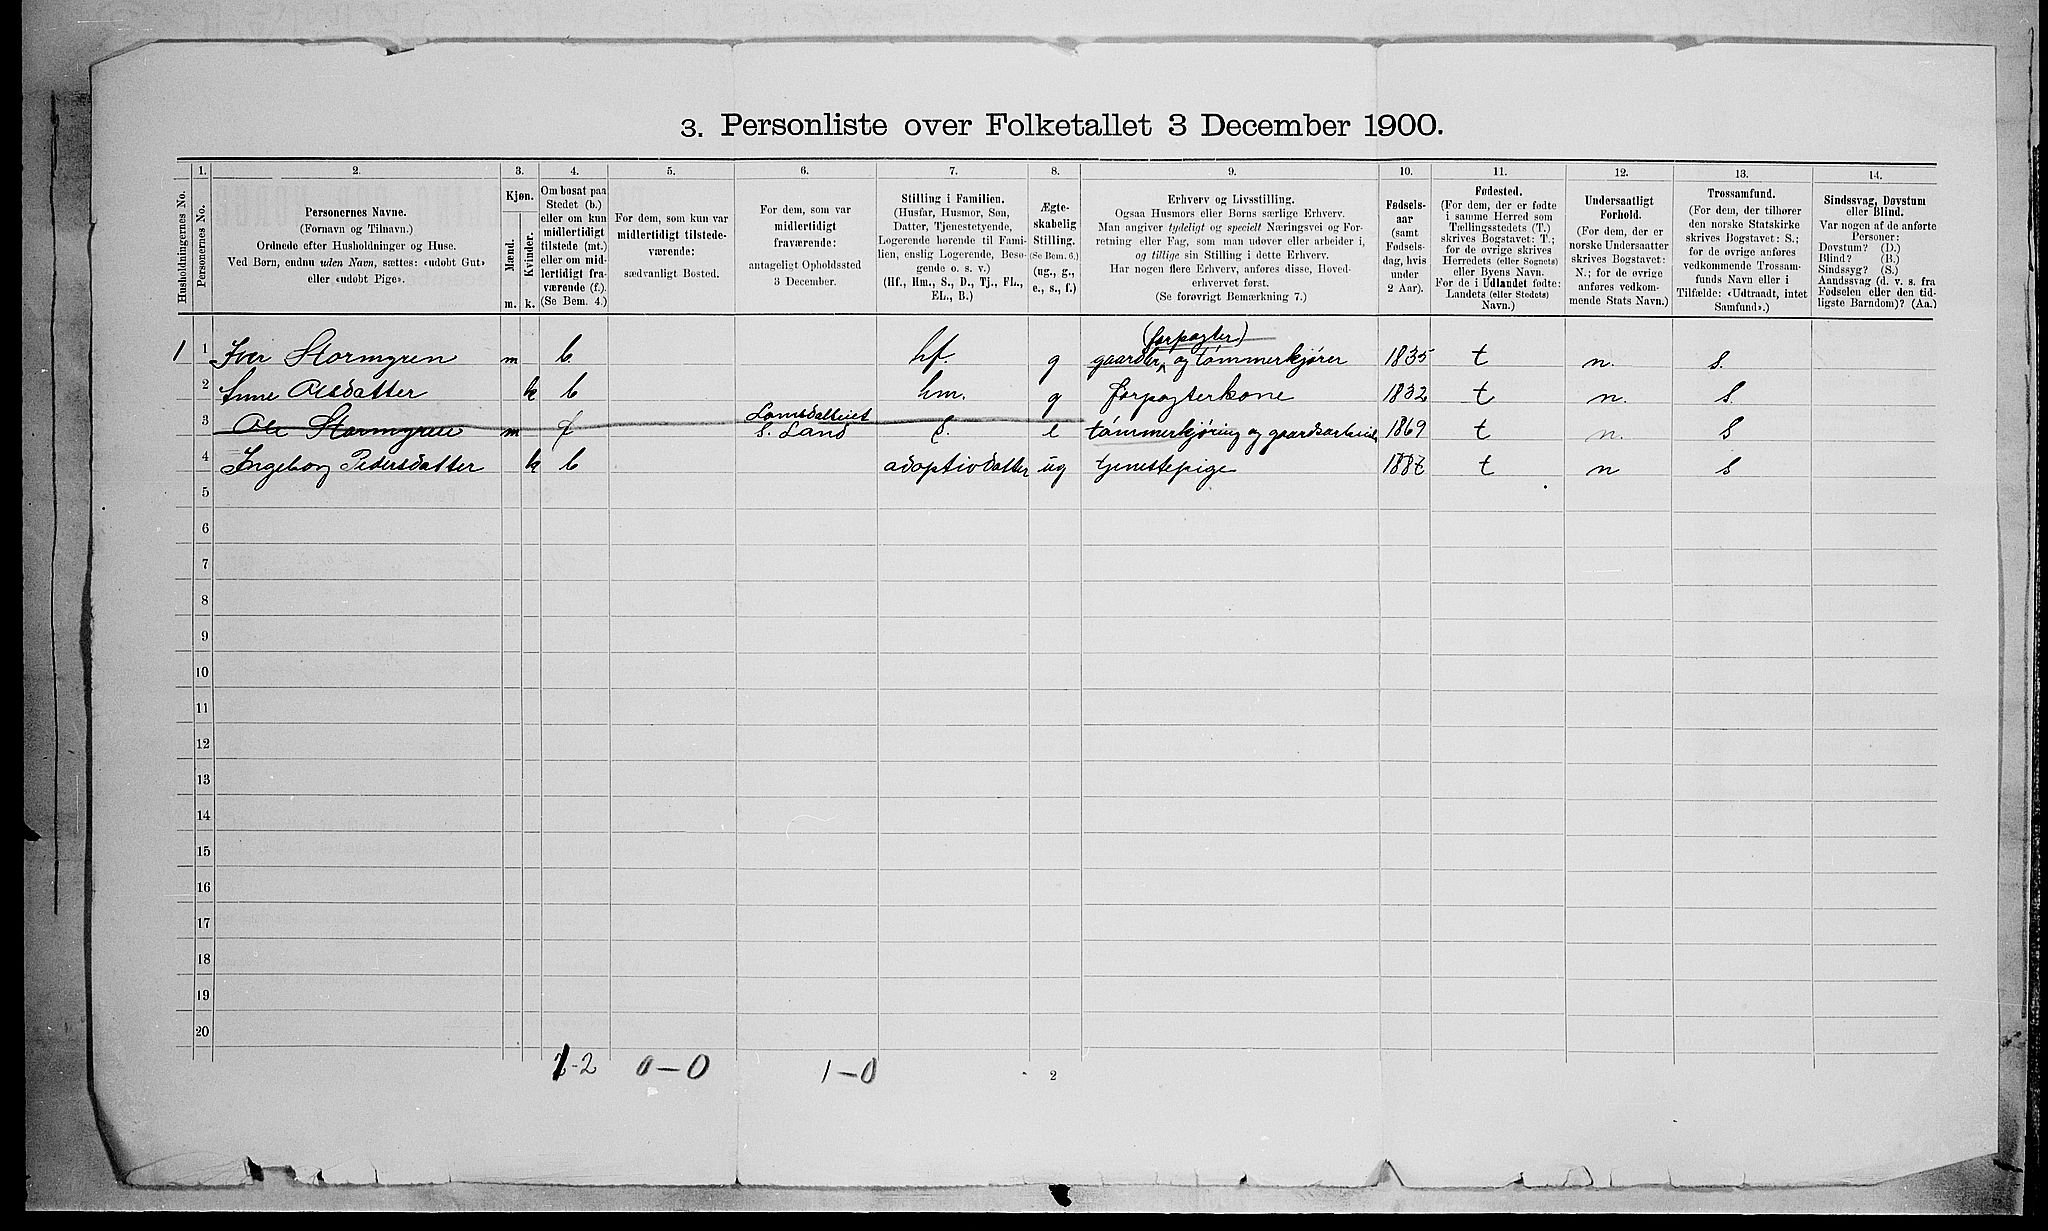 3. Personliste over Folketallet 3 December 1900.
Husholdningernes No.
1.
Personernes No.
2.
Personernes Navne.
(Fornavn og Tilnavn.)
Ordnede efter Husholdninger og Huse.
Ved Børn, endnu uden Navn, sættes: «udøbt Gut»
eller «udøbt Pige».
3.
Kjøn.
Mænd.
Kvinder.
m.
k.
4.
Om bosat paa
Stedet (b.)
eller om kun
midlertidigt
tilstede (mt.)
eller om mid-
lertidigt fra-
værende (f.).
(Se Bem. 4.)
5.
For dem, som kun var
midlertidigt tilstede-
værende:
sædvanligt Bosted.
6.
For dem, som var
midlertidigt
fraværende:
antageligt Opholdssted
3 December.
7.
Stilling i Familien.
(Husfar, Husmor, Søn,
Datter, Tjenestetyende,
Logerende hørende til Fami-
lien, enslig Logerende, Besø-
gende o. s. v.)
(Hf., Hm., S., D., Tj., FL.,
EL., B.)
8.
Ægte-
skabelig
Stilling.
(Se Bem. 6.)
(ug., g.,
e., s., f.)
9.
Erhverv og Livsstilling.
Ogsaa Husmors eller Børns særlige Erhverv.
Man angiver tydeligt og specielt Næringsvei og For-
retning eller Fag, som man udøver eller arbeider i,
og tillige sin Stilling i dette Erhverv.
Har nogen flere Erhverv, anføres disse, Hoved-
erhvervet først.
(Se forøvrigt Bemærkning 7.)
10.
Fødsels-
aar
(samt
Fødsels-
dag, hvis
under
2 Aar).
11.
Fødested.
(For dem, der er fødte
i samme Herred som
Tællingsstedets (T.)
skrives Bogstavet: T.;
for de øvrige skrives
Herredets (eller Sognets)
eller Byens Navn.
For de i Udlandet fødte:
Landets (eller Stedets)
Navn.)
12.
Undersaatligt
Forhold.
(For dem, der er
norske Undersaatter
skrives Bogstavet:
N.; for de øvrige
anføres vedkom-
mende Stats Navn.)
13.
Trossamfund.
(For dem, der tilhører
den norske Statskirke
skrives Bogstavet: S.;
for de øvrige anføres
vedkommende Trossam-
funds Navn eller i
Tilfælde: «Udtraadt, intet
Samfund».)
14.
Sindssvag, Døvstum
eller Blind.
Var nogen af de anførte
Personer:
Døvstum? (D.)
Blind? (B.)
Sindssyg? (S.)
Aandssvag (d. v. s. fra
Fødselen eller den tid-
ligste Barndom)? (Aa.)
(forpagter)
1 1 Iver Stormyren m b. hf. g gaardbr. og tømmerkjører 1835 t n. s.
2 Anne Olsdatter k b hm. g forpagterkone 1832 t n. s.
Lomsdalseiet
3 Ole Stormyren m f S. Land s. e tømmerkjøring og gaardsarbeide 1869 t n. s
4 Ingeborg Pedersdatter k b adoptivdatter ug tjenestepige t n s
5
6
7
8
9
10
11
12
13
14
15
16
17
18
19
20
1-2 0-0 1-0
2